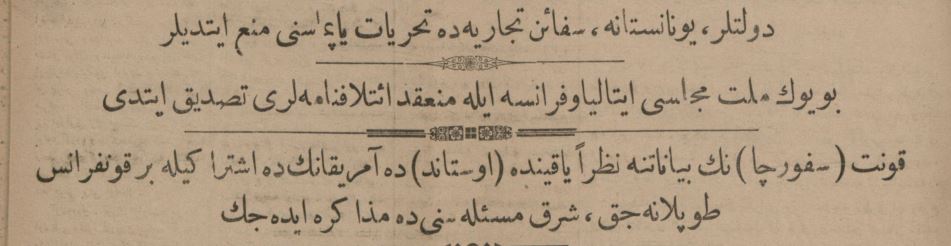 دولتلر، یونانستانه، سفائن تجاریه‌ده تحریات یاپماسنی منع ایتدیلر
بویوك ملت مجلسی ایتالیا وفرانسه ایله منعقد ائتلافنامه‌لری تصدیق ایتدی
قونت (سفورچا) نك بیاناتنه نظراً یاقینده (اوستاند) ده آمریقانك ده اشتراكیله بر قونفرانس
طوپلانه‌جق، شرق مسئله‌سنی ده مذاكره ایده‌جك